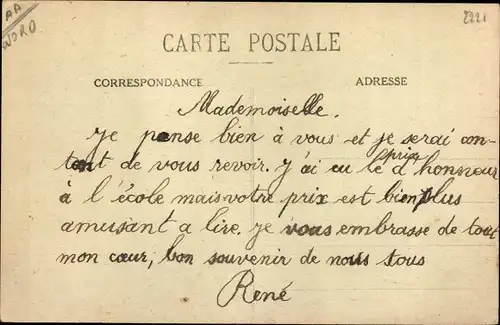 AA
NORD
2221
CARTE POSTALE
CORRESPONDANCE ADRESSE
Mademoiselle.
Je pense bien à vous et je serai con-
tent de vous revoir. J'ai eu le prix d'honneur
à l'école mais votre prix est bien plus
amusant a lire. Je vous embrasse de tout
mon cœur, bon souvenir de nous tous
René